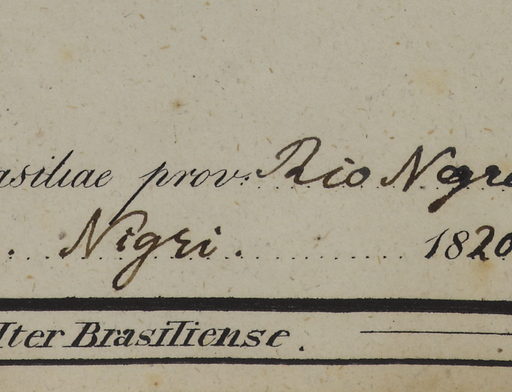 asiliae prov. Rio Negro
. Nigri. 1820
Iter Brasiliense.